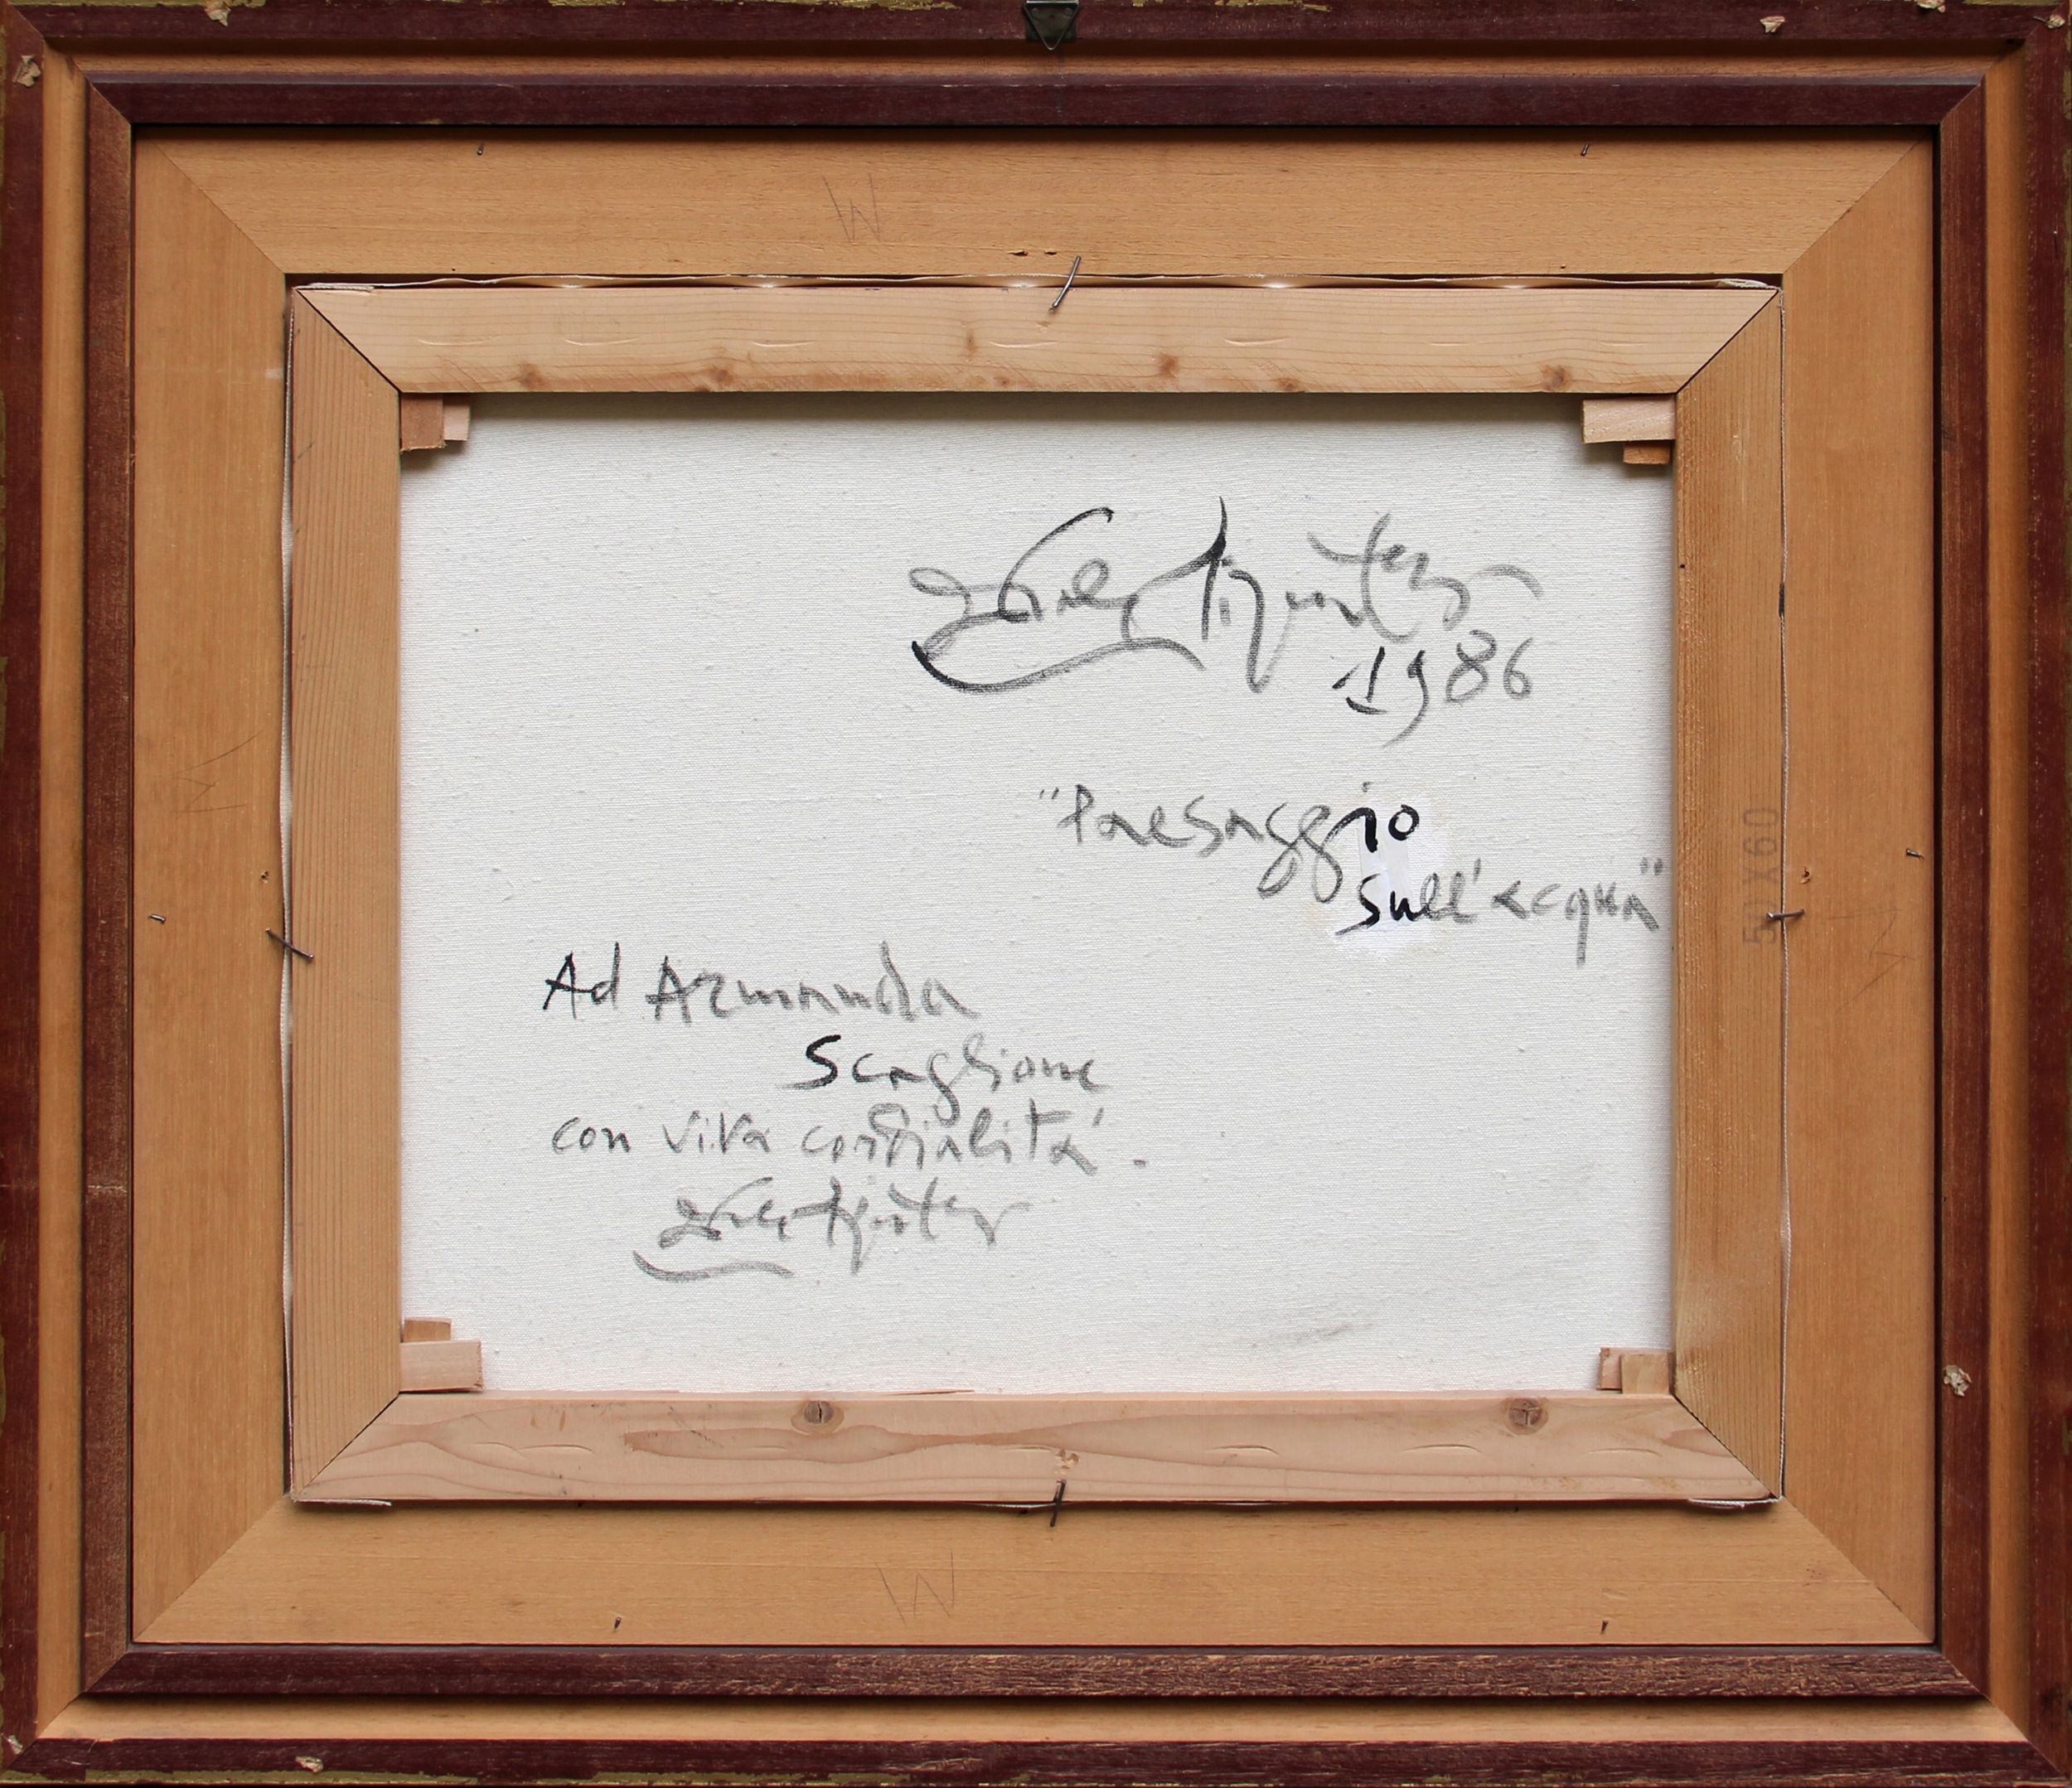 1986
"Paesaggio
sull'acqua"
50X60
Ad Armanda
Scaglione
con viva cordialità.
W
W